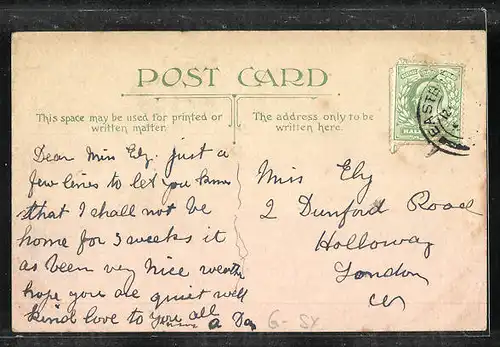 POST CARD
This space may be used for printed or
written matter.
The address only to be
written here.
HALF
EASTB
Dear Miss Ely. just a
few lines to let you know
that I shall not be
home for 3 weeks it
as been very nice weather
hope you are quiet well
kind love to you all
Miss Ely
2 Dunford Road
Holloway
London